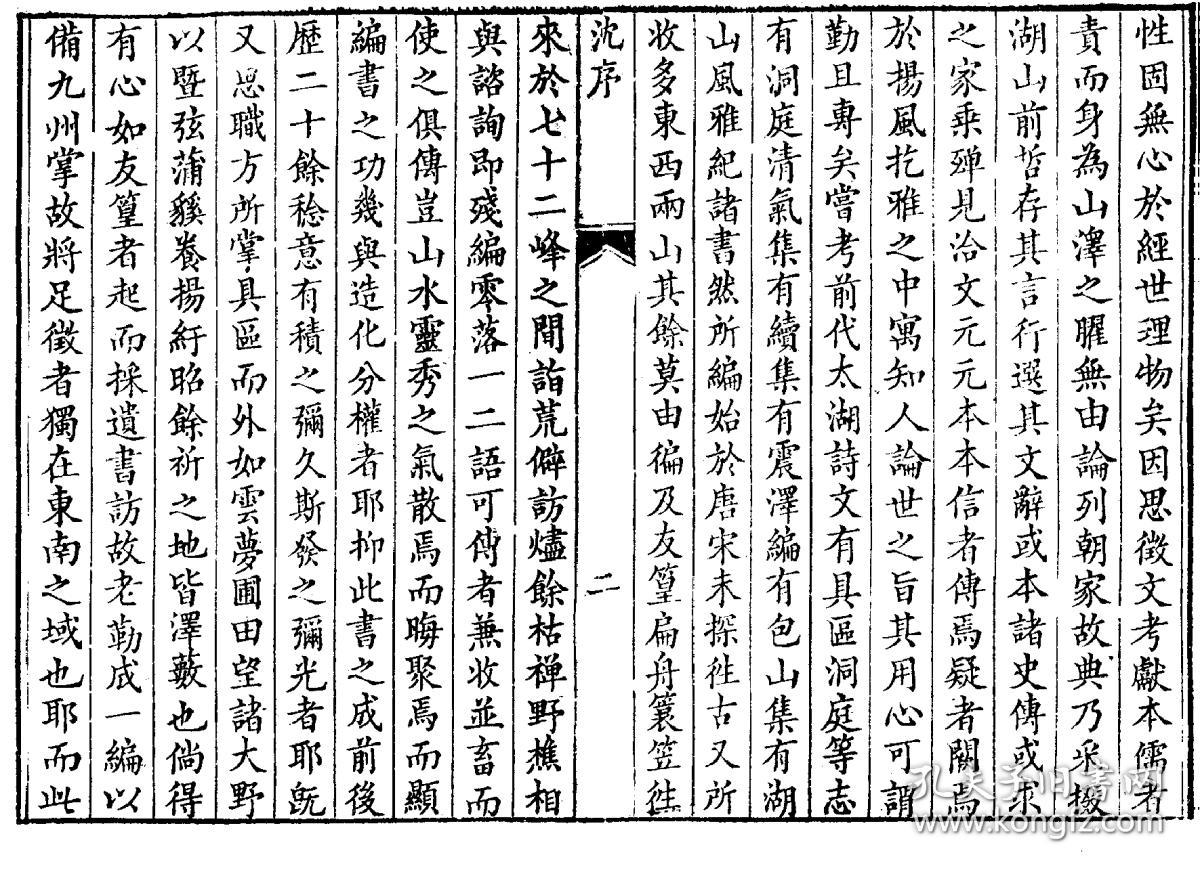 性固無心於經世理物矣因思徵文考獻本儒者
責而身為山澤之臞無由論列朝家故典乃采掇
湖山前哲存其言行選其文辭或本諸史傳或求
之家乘殫見洽文元元本本信者傳焉疑者闕焉
於揚風扢雅之中寓知人論世之旨其用心可謂
勤且專矣嘗考前代太湖詩文有具區洞庭等志
有洞庭清氣集有續集有震澤編有包山集有湖
山風雅紀諸書然所編始於唐宋未探徃古又所
收多東西兩山其餘莫由徧及友篁扁舟蓑笠徃
沈序
二
來於七十二峰之間詣荒僻訪燼餘枯禅野樵相
與諮詢即殘編零落一二語可傳者兼收並畜而
使之俱傳豈山水靈秀之氣散焉而晦聚焉而顯
編書之功幾與造化分權者耶抑此書之成前後
歷二十餘稔意有積之彌久斯發之彌光者耶旣
又思職方所掌具區而外如雲夢圃田望諸大野
以暨弦蒲貕養揚紆昭餘祈之地皆澤藪也倘得
有心如友篁者起而採遺書訪故老勒成一編以
備九州掌故將足徵者獨在東南之域也耶而此
孔夫子旧书网
www.kongfz.com